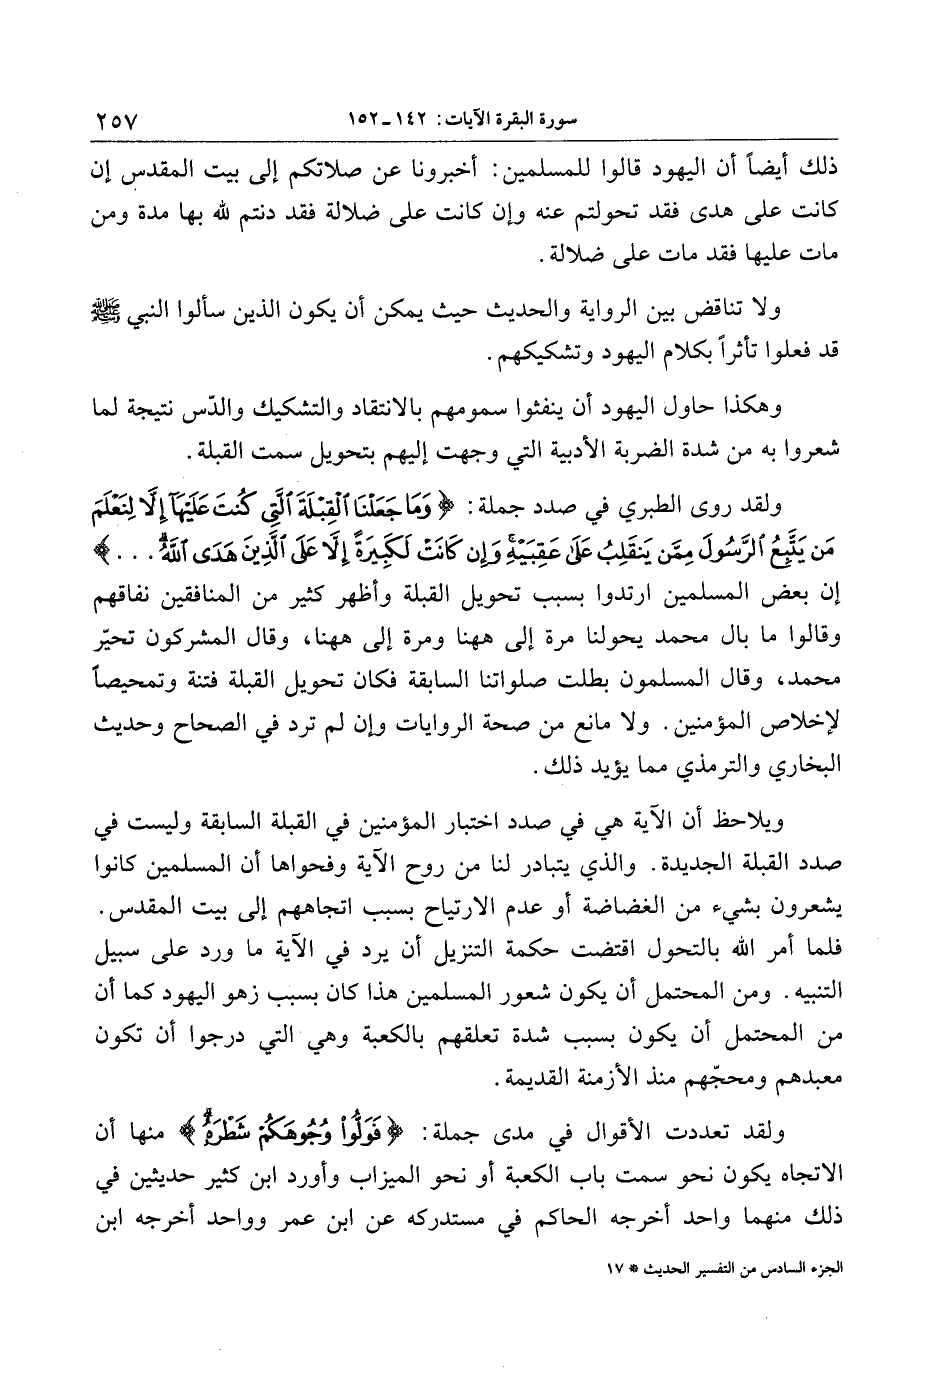 سورة البقرة الآيات: ١٤٢ ـ ١٥٢ ٢٥٧
ذلك أيضاً أن اليهود قالوا للمسلمين: أخبرونا عن صلاتكم إلى بيت المقدس إن
كانت على هدى فقد تحولتم عنه وإن كانت على ضلالة فقد دنتم لله بها مدة ومن
مات عليها فقد مات على ضلالة.
ولا تناقض بين الرواية والحديث حيث يمكن أن يكون الذين سألوا النبي ﷺ
قد فعلوا تأثراً بكلام اليهود وتشكيكهم.
وهكذا حاول اليهود أن ينفثوا سمومهم بالانتقاد والتشكيك والدّس نتيجة لما
شعروا به من شدة الضربة الأدبية التي وجهت إليهم بتحويل سمت القبلة.
ولقد روى الطبري في صدد جملة: ﴿ وَمَا جَعَلْنَا ٱلْقِبْلَةَ ٱلَّتِي كُنتَ عَلَيْهَآ إِلَّا لِنَعْلَمَ
مَن يَتَّبِعُ ٱلرَّسُولَ مِمَّن يَنقَلِبُ عَلَىٰ عَقِبَيْهِۚ وَإِن كَانَتْ لَكَبِيرَةً إِلَّا عَلَى ٱلَّذِينَ هَدَى ٱللَّهُۗ . . . ﴾
إن بعض المسلمين ارتدوا بسبب تحويل القبلة وأظهر كثير من المنافقين نفاقهم
وقالوا ما بال محمد يحولنا مرة إلى ههنا ومرة إلى ههنا، وقال المشركون تحيّر
محمد، وقال المسلمون بطلت صلواتنا السابقة فكان تحويل القبلة فتنة وتمحيصاً
لإخلاص المؤمنين. ولا مانع من صحة الروايات وإن لم ترد في الصحاح وحديث
البخاري والترمذي مما يؤيد ذلك.
ويلاحظ أن الآية هي في صدد اختبار المؤمنين في القبلة السابقة وليست في
صدد القبلة الجديدة. والذي يتبادر لنا من روح الآية وفحواها أن المسلمين كانوا
يشعرون بشيء من الغضاضة أو عدم الارتياح بسبب اتجاههم إلى بيت المقدس.
فلما أمر الله بالتحول اقتضت حكمة التنزيل أن يرد في الآية ما ورد على سبيل
التنبيه. ومن المحتمل أن يكون شعور المسلمين هذا كان بسبب زهو اليهود كما أن
من المحتمل أن يكون بسبب شدة تعلقهم بالكعبة وهي التي درجوا أن تكون
معبدهم ومحجّهم منذ الأزمنة القديمة.
ولقد تعددت الأقوال في مدى جملة: ﴿ فَوَلُّوا۟ وُجُوهَكُمْ شَطْرَهُۥۗ ﴾ منها أن
الاتجاه يكون نحو سمت باب الكعبة أو نحو الميزاب وأورد ابن كثير حديثين في
ذلك منهما واحد أخرجه الحاكم في مستدركه عن ابن عمر وواحد أخرجه ابن
الجزء السادس من التفسير الحديث * ١٧